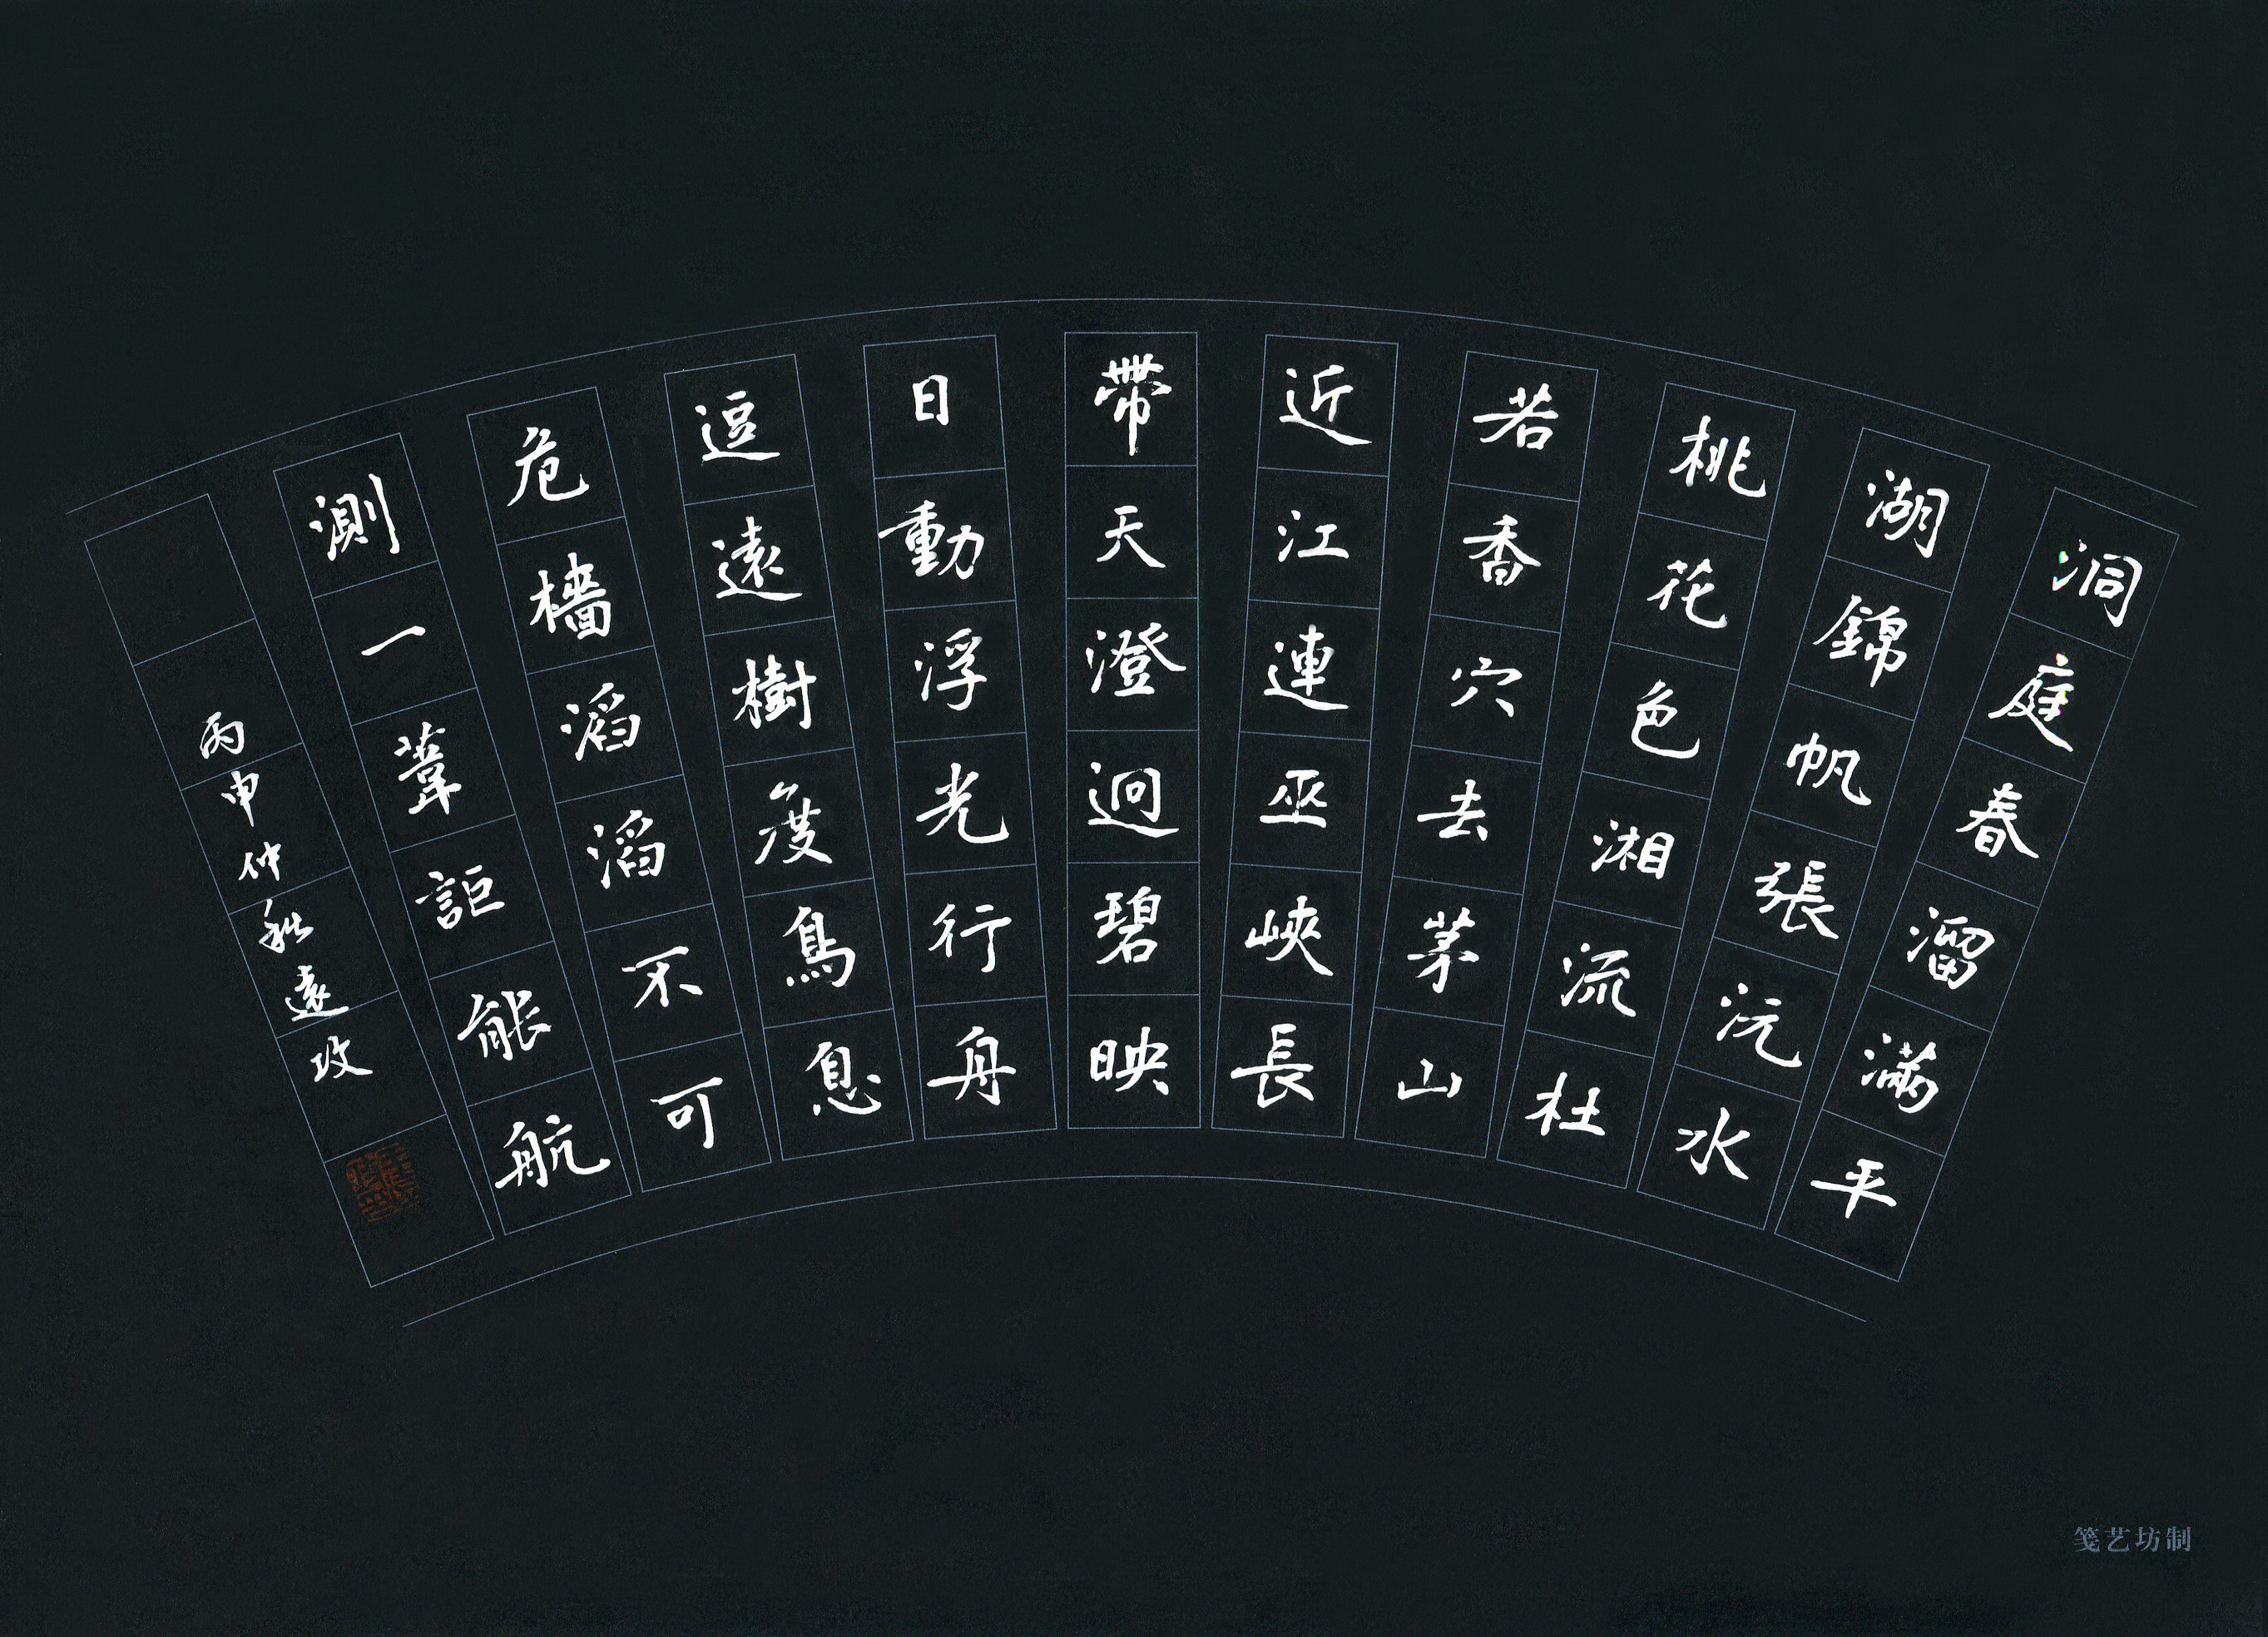 洞庭春溜滿平
湖錦帆張沅水
桃花色湘流杜
若香穴去茅山
近江連巫峽長
帶天澄迥碧映
日動浮光行舟
逗遠樹度鳥息
危檣滔滔不可
測一葦詎能航
丙申仲秋遠攻
笺艺坊制